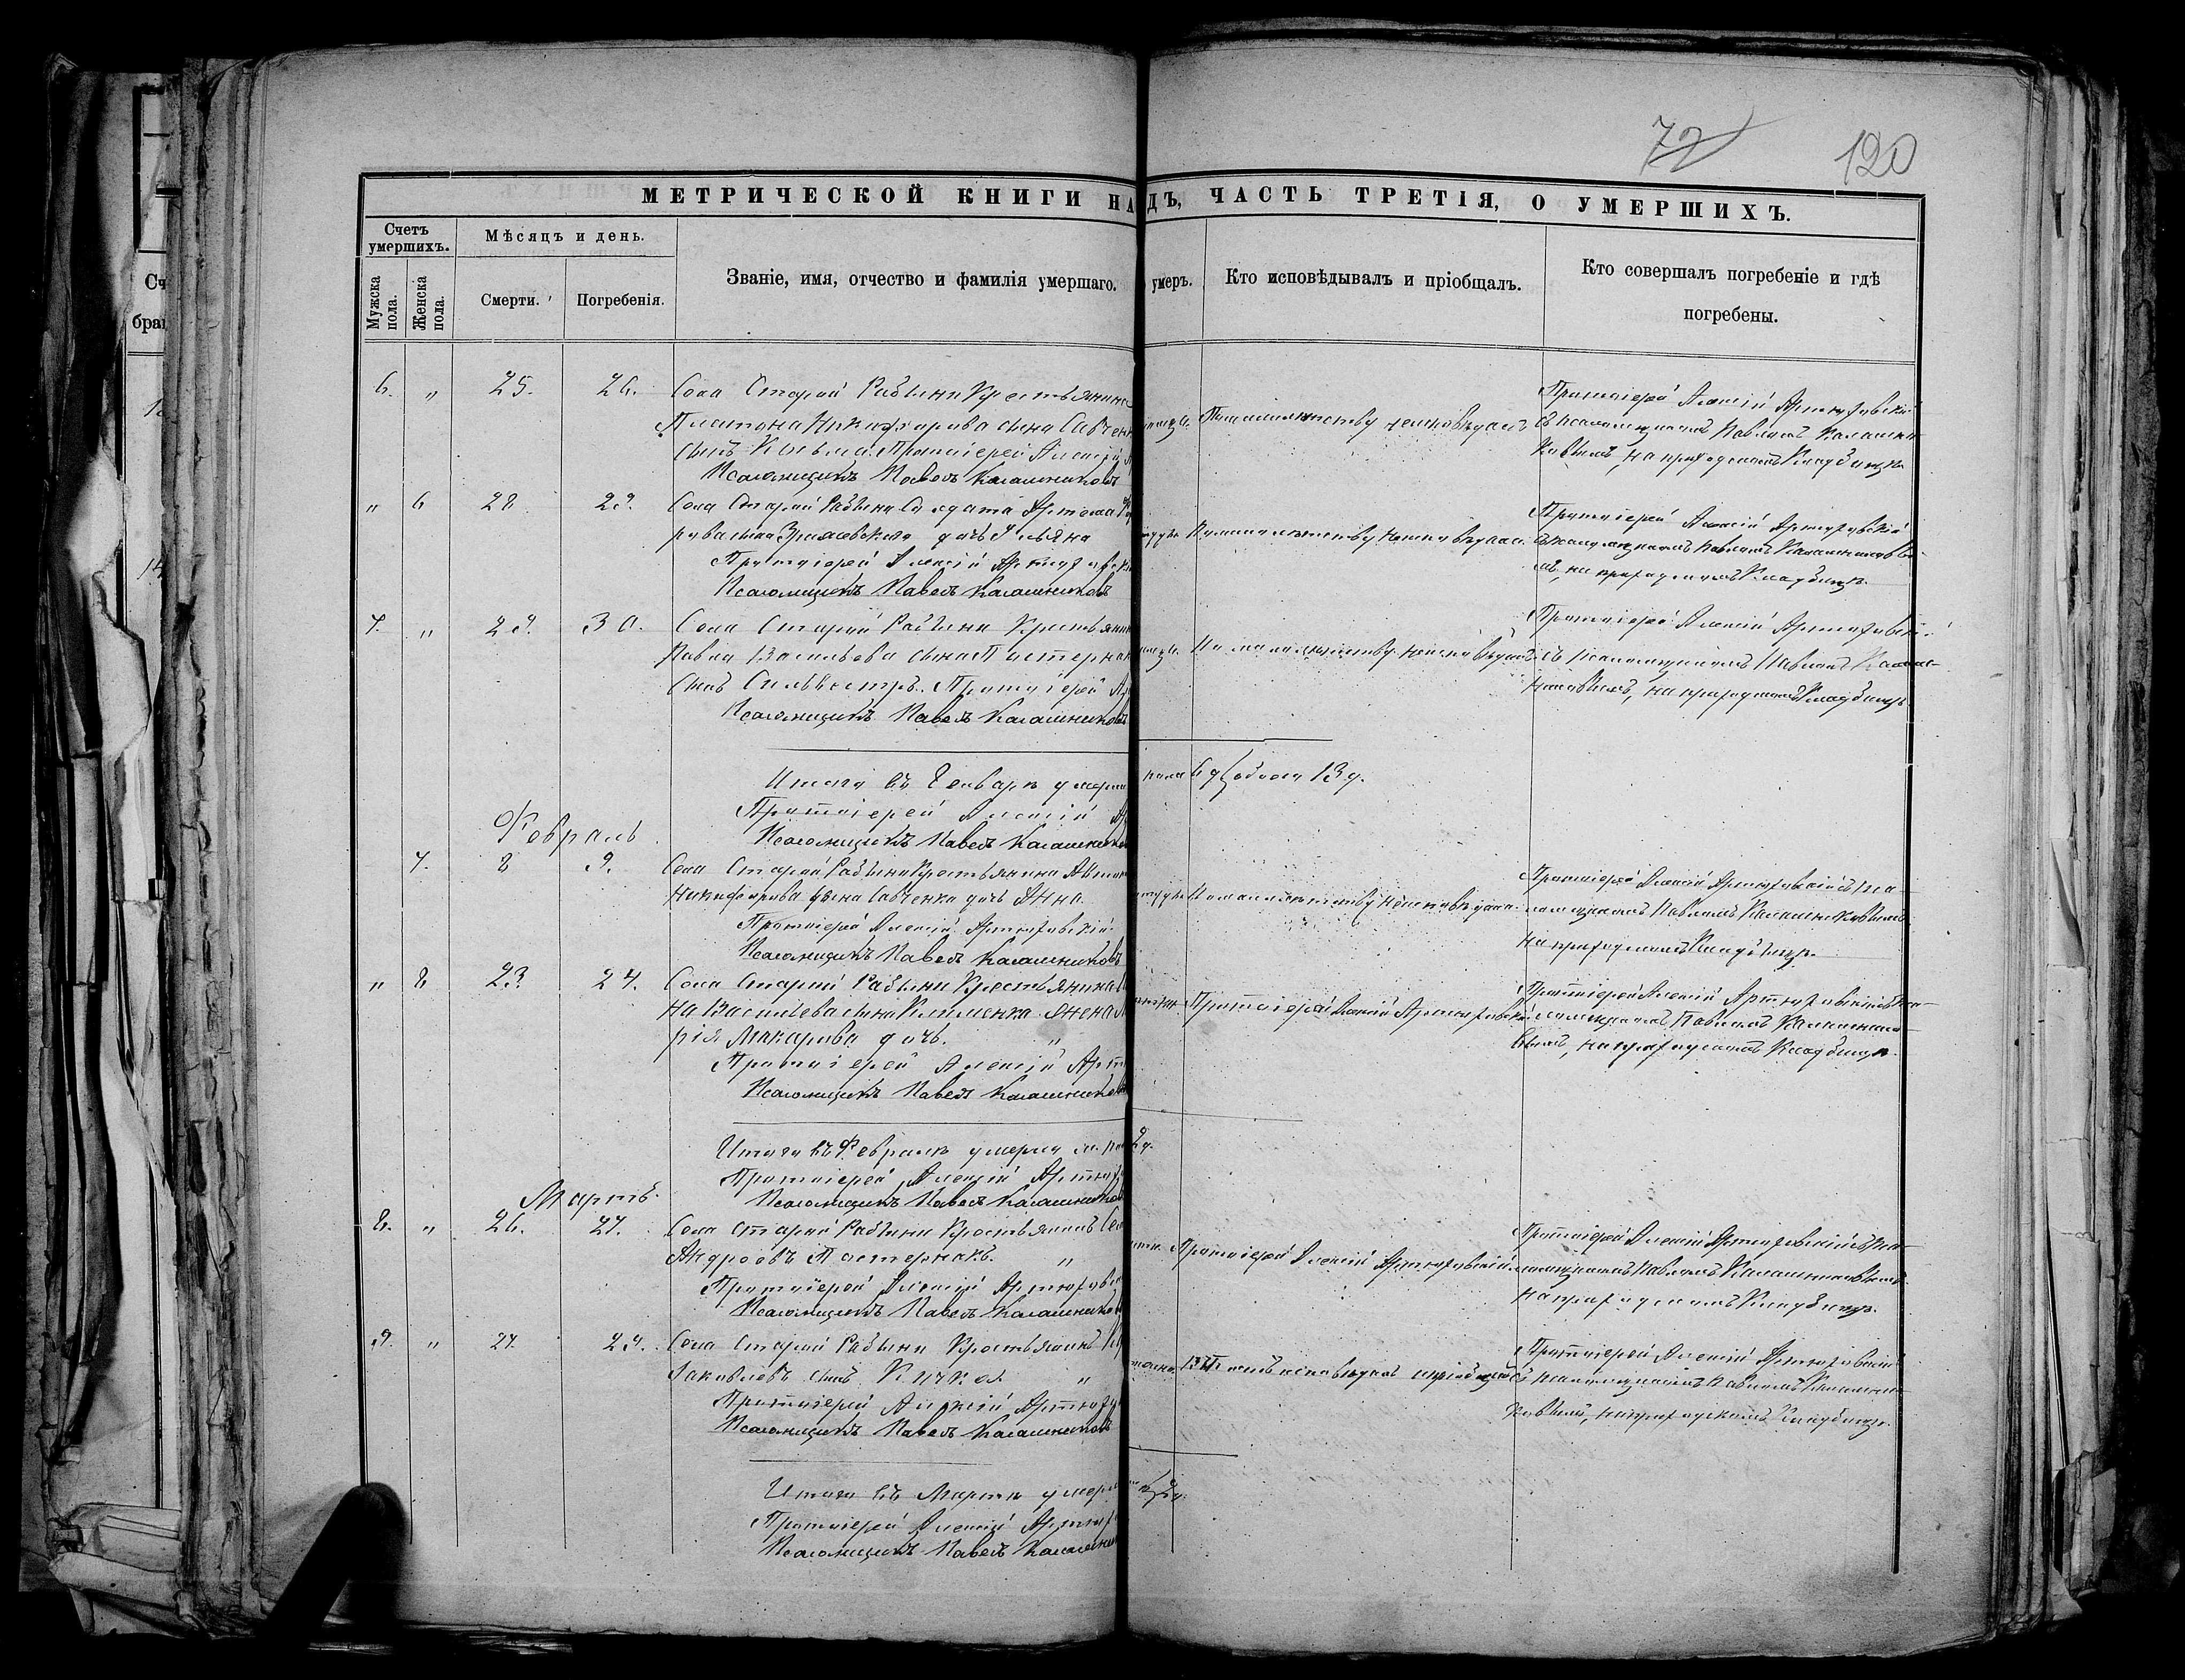 72 120
МЕТРИЧЕСКОЙ КНИГИ НА ДЪ, ЧАСТЬ ТРЕТІЯ, О УМЕРШИХЪ.
Счетъ умершихъ.
Мѣсяцъ и день.
Званіе, имя, отчество и фамилія умершаго.
умеръ.
Кто исповѣдывалъ и пріобщалъ.
Кто совершалъ погребеніе и гдѣ
погребены.
Мужска пола.
Женска пола.
Смерти.
Погребенія.
6. " 25. 26. Села Старой Рабыни Крестьянина
Платона Никифорова сына Савченк
сынъ Козьма. Протоіерей Алексій
Псаломщикъ Павелъ Калашниковъ
По малолѣтству не исповѣданъ
Протоіерей Алексій Артюховскій
съ псаломщикомъ Павломъ Калашни
ковымъ, на приходскомъ Кладбищѣ.
" 6 28 29. Села Старой Рабыни Солдата Артема
дочь Ульяна
Протоіерей Алексій Артюховскі
Псаломщикъ Павелъ Калашниковъ
По малолѣтству не исповѣдана
Протоіерей Алексій Артюховскій
съ псаломщикомъ Павломъ Калашниковы
мъ, на приходскомъ Кладбищѣ.
7. " 29. 30. Села Старой Рабыни Крестьянин
Павла Васильева сына Пастернак
сынъ Сильвестръ. Протоіерей Ар
Псаломщикъ Павелъ Калашниковъ
По малолѣтству не исповѣданъ
Протоіерей Алексій Артюховскій
съ псаломщикомъ Павломъ Калаш-
никовымъ, на приходскомъ Кладбищѣ
Итого въ Генварѣ умерл
пола 6 д. обоего 13 д.
Протоіерей Алексій Ар
Псаломщикъ Павелъ Калашников
Февраль
7. 8 9. Села Старой Рабыни Крестьянина Антон
Никифорова сына Савченка дочь Анна
Протоіерей Алексій Артюховскій
Псаломщикъ Павелъ Калашниковъ
По малолѣтству не исповѣдана
Протоіерей Алексій Артюховскій съ пса-
ломщикомъ Павломъ Калашниковымъ
на приходскомъ Кладбищѣ.
" 8 23 24. Села Старой Рабыни Крестьянина
на Васильева сына Клименка жена
рія Макарова дочь. "
Протоіерей Алексій Арт
Псаломщикъ Павелъ Калашников
Протоіерей Алексій Артюховскій
Протоіерей Алексій Артюховскій съ пса-
ломщикомъ Павломъ Калашнико-
вымъ, на приходскомъ Кладбищѣ.
Итого въ Февралѣ умерло м. по
2 д.
Протоіерей Алексій Артюх
Псаломщикъ Павелъ Калашников
Мартъ.
8. " 26. 27. Села Старой Рабыни Крестьянинъ Се
Андреевъ Пастернакъ. "
Протоіерей Алексій Артюхов
Псаломщикъ Павелъ Калашников
Протоіерей Алексій Артюховскій
Протоіерей Алексій Артюховскій съ пса-
ломщикомъ Павломъ Калашниковымъ
на приходскомъ Кладбищѣ.
9. " 27. 29. Села Старой Рабыни Крестьянинъ
Яковлевъ сынъ "
Протоіерей Алексій Артюхо
Псаломщикъ Павелъ Калашниковъ
исповѣданъ и пріобщенъ
Протоіерей Алексій Артюховскій
съ псаломщикомъ Павломъ Калашни-
ковымъ, на приходскомъ Кладбищѣ.
Итого въ Мартѣ умерл
2 д.
Протоіерей Алексій Артюх
Псаломщикъ Павелъ Калашни